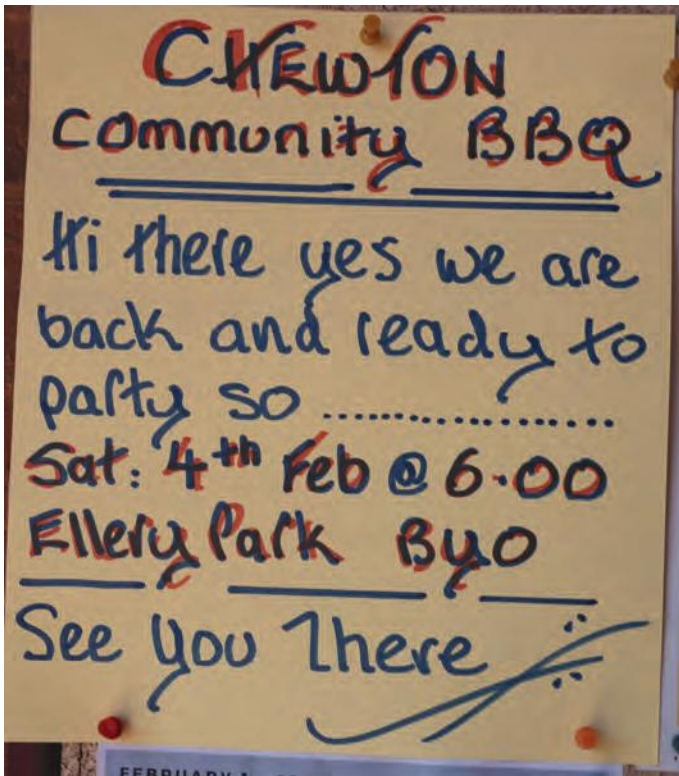 CHEWTON
Community BBQ
Hi there yes we are
back and ready to
party so ....................
Sat: 4th Feb @ 6.00
Ellery Park ByO
See you There